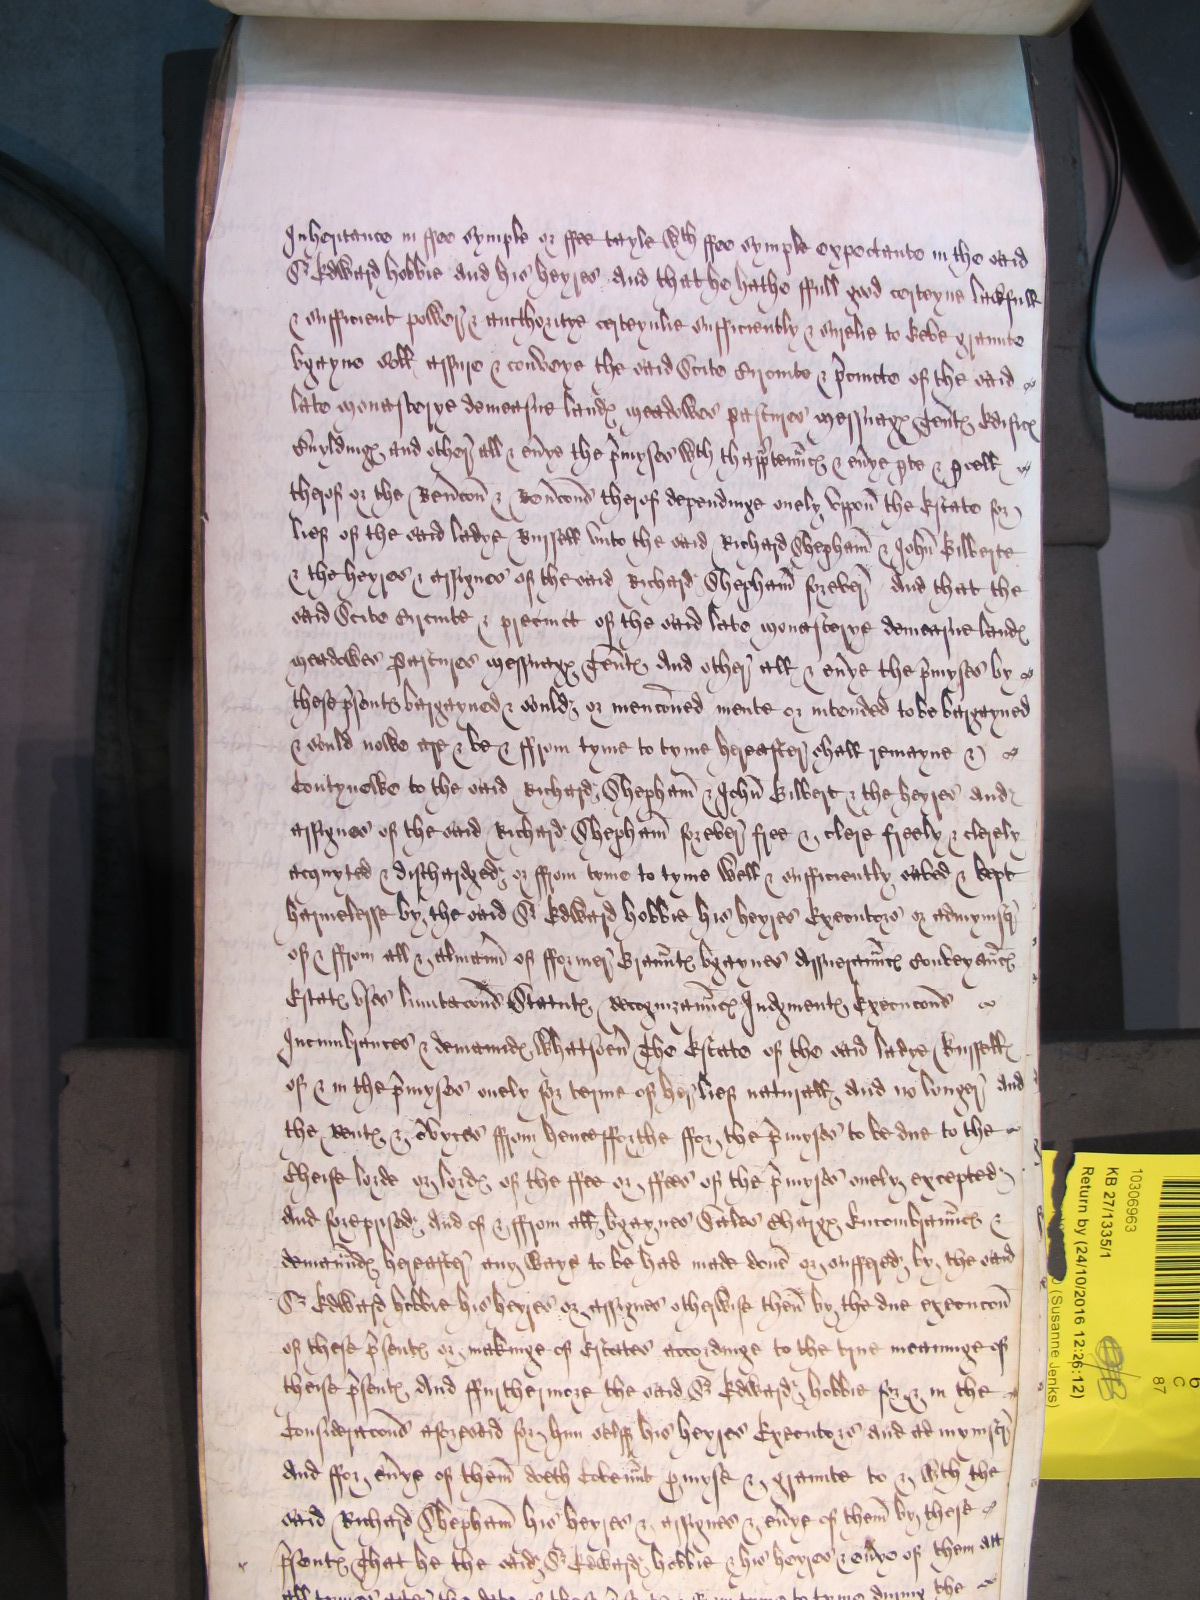 Inheritance in ffee symple or ffee tayle wth ffee symple expectante in the said
Sr Edward hobbie and his heyres And that he hathe ffull good certeyne lawfull
& sufficient power & aucthoritye certeynlie sufficiently & surelie to geve graunte
bgayne sell assure & conveye the said Scite Circuite & p̃cincte of the said
late monasterye demeasne landꝭ meadowes pastures messuagꝭ Teñtꝭ Edificꝭ
Buyldingꝭ and other all & eṽye the p̃mysses wth thapp̃teñncꝭ & eṽye p̱te & p̱cell
therof or the Reṽcon̄ & Reṽcons̄ therof dependinge onely vppon the Estate for
lief of the said ladye Russell vnto the said Richard Shepham̄ & John̄ Gilberte
& the heyres & assignes of the said Richard Shepham̄ forever And that the
said Scite Circuite & precinct of the said late monasterye demeasne landꝭ
meadowes Pastures messuagꝭ Teñtꝭ And other all & eṽye the p̃mysses by
these p̃sentꝭ bargayned & sould or mencōned mente or intended to be bargayned
& sould nowe are & be & ffrom tyme to tyme hereafter shall remayne &
Contynewe to the said Richard Shepham̄ & John̄ Gilbert & the heyres and
assignes of the said Richard Shepham̄ forever free & clere freely & clerely
acquyted & dischardged or ffrom tyme to tyme well & sufficiently saved & kept
harmelesse by the said Sr Edward hobbie his heyres Executors or admynistr̃
of & ffrom all & almann̄ of fformer Graũntꝭ bgaynes Assuraũncꝭ Conveyaũncꝭ
Estatꝭ vses lymitacons̄ Statutꝭ Recognizaũncꝭ Judgmentꝭ Execucons̄
Incumbrances & demaundꝭ whatsoeṽ The Estate of the said ladye Russell
of & in the p̃mysses onely for terme of her lief naturall and no longer And
the Rentꝭ & s̃vyces ffrom hencefforthe ffor the p̃mysses to be due to the
Cheife lorde or lordꝭ of the ffee or ffees of the p̃mysses onely excepted
and foreprised And of & ffrom all bgaynes Sales chargꝭ Encombraũncꝭ &
demaũndꝭ hereafter any waye to be had made done or suffered by the said
Sr Edward hobbie his heyres or assignes otherwise then by the due execucon̄
of these p̃sentꝭ or makinge of Estates accordinge to the true meaninge of
theise p̃sentꝭ And ffurthermore the said Sr Edward hobbie for & in the
Consideracons̄ aforesaid for him selff his heyres Executors and admynistr̃
and ffor eṽye of them doeth Coveñnt p̱myse & graunte to & wth the
said Richard Shepham̄ his heyres & assignes & eṽye of them by these
p̃sentꝭ That he the said Sr Edward hobbie & his heyres & eṽye of them att
all tymes after the date of these
10306963
KB 27/1335/1
Return by (24/10/2016 12:26:12)
(Susanne Jenks)
C
87